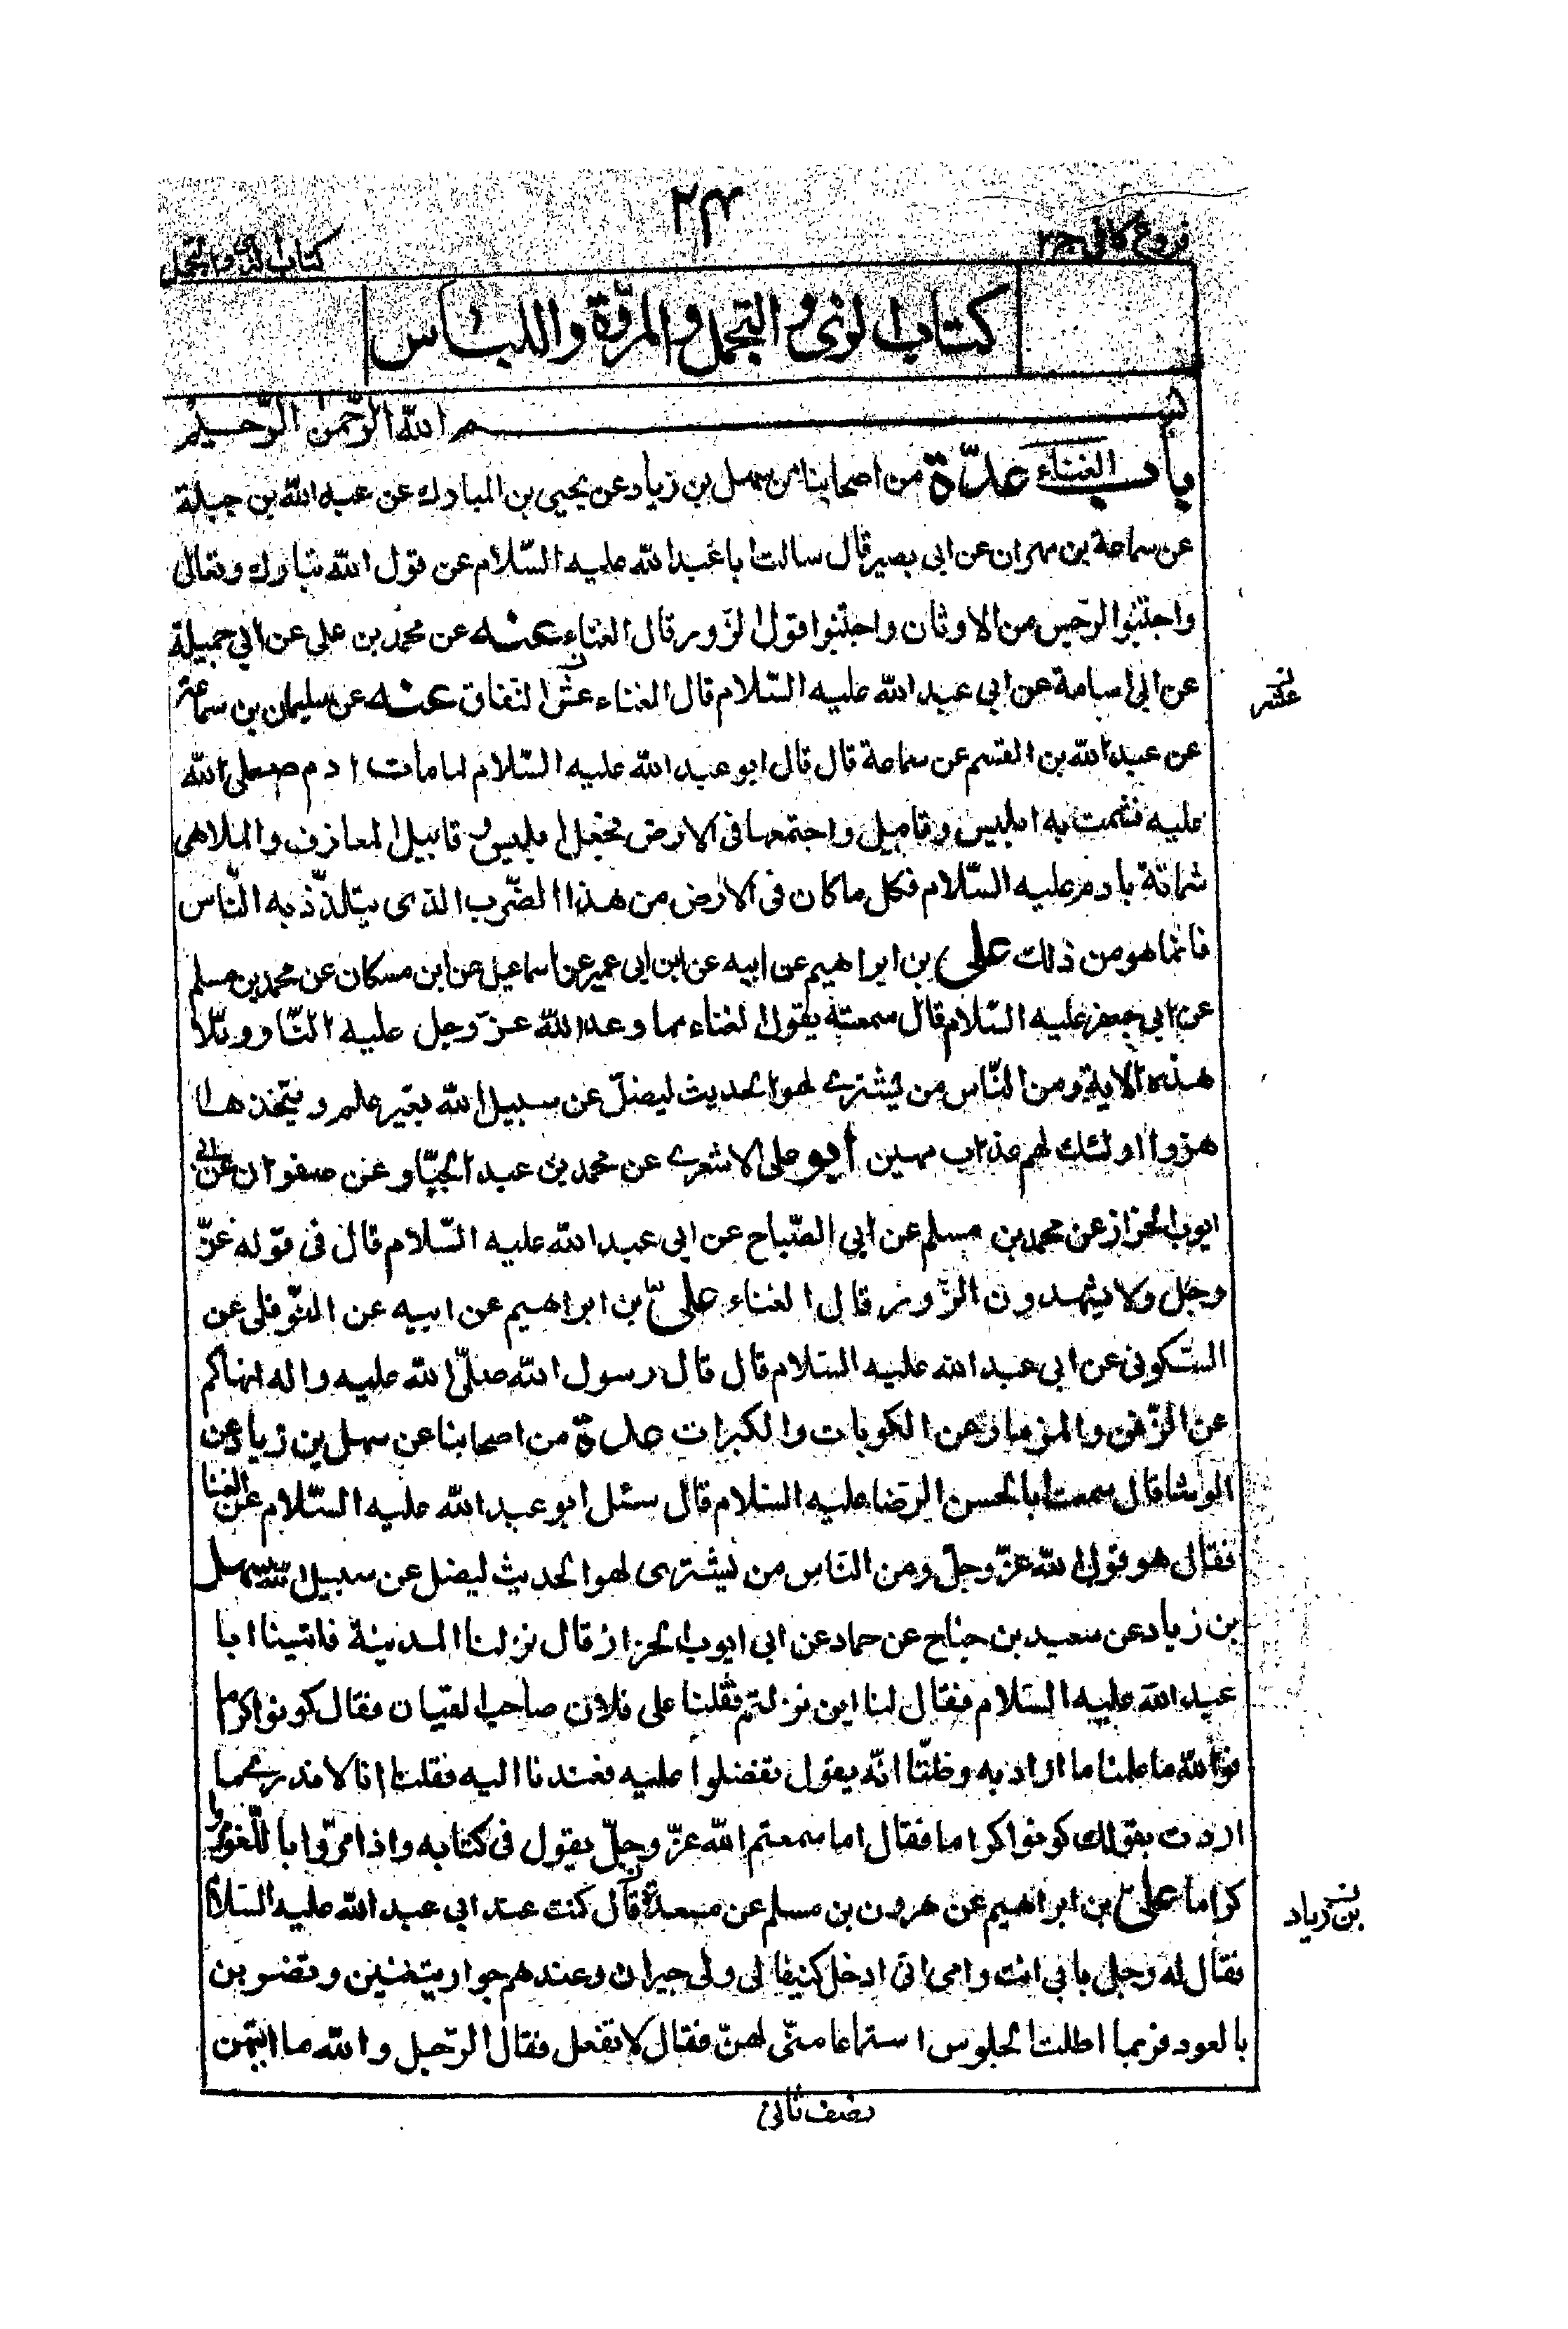 ٢٤
فروع كافى ج٢
كتاب الزى والتجمل
كتاب الزى و التجمل و المروّة و اللباس
بسم الله الرّحمن الرّحيم
باب الغناء عدّة من اصحابنا عن سهل بن زياد عن يحيى بن المبارك عن عبد الله بن جبلة
عن سماعة بن مهران عن ابى بصير قال سالت ابا عبد الله عليه السّلام عن قول الله تبارك وتعالى
واجتنبوا الرّجس من الاوثان واجتنبوا قول الزّور قال الغناء عنه عن محمد بن على عن ابي جميلة
عن ابى اسامة عن ابي عبد الله عليه السّلام قال الغناء عشّ النفاق عنه عن سليمان بن سماعة
عن عبد الله بن القسم عن سماعة قال قال ابو عبد الله عليه السّلام لما مات ادم صلى الله
عليه فشمت به ابليس وقابيل واجتمعا فى الارض فجعل ابليس و قابيل المعازف والملاهى
شماتة بادم عليه السّلام فكل ما كان فى الارض من هذا الضّرب الذى يتلذّذ به النّاس
فانما هو من ذلك على بن ابراهيم عن ابيه عن ابن ابى عمير عن اسماعيل عن ابن مسكان عن محمد بن مسلم
عن ابي جعفر عليه السّلام قال سمعته يقول الغناء مما وعد الله عزّ وجل عليه النّار وتلا
هذه الاية ومن النّاس من يشترے لهو الحديث ليضلّ عن سبيل الله بغير علم ويتخذها
هزوا اولئك لهم عذاب مهين ابو على الاشعرے عن محمد بن عبد الجبّار عن صفوان عن ابى
ايوب الخزاز عن محمد بن مسلم عن ابي الصّباح عن ابى عبد الله عليه السّلام قال فى قوله عزّ
وجلّ ولا يشهدون الزّور قال الغناء علىّ بن ابراهيم عن ابيه عن النّوفلى عن
السّكونى عن ابى عبد الله عليه السّلام قال قال رسول الله صلّى الله عليه واله انهاكم
عن الزّفن والمزمار وعن الكوبات والكبرات عدة من اصحابنا عن سهل بن زياد عن
الوشا قال سمعت ابا الحسن الرّضا عليه السّلام قال سئل ابو عبد الله عليه السّلام عن الغنا
فقال هو قول الله عزّ وجلّ ومن النّاس من يشترى لهو الحديث ليضل عن سبيل الله سهل
بن زياد عن سعيد بن جناح عن حماد عن ابى ايوب الخزاز قال نزلنا المدينة فاتينا ابا
عبد الله عليه السّلام فقال لنا اين نزلتم فقلنا على فلان صاحب القيان فقال كونوا كراما
فوالله ما علمنا ما اراد به وظنّنا انّه يقول تفضلوا عليه فعدنا اليه فقلنا انا لا ندرے بما
اردت بقولك كونوا كراما فقال اما سمعتم الله عزّ وجلّ يقول فى كتابه واذا مرّوا باللّغو مروا
كراما علىّ بن ابراهيم عن هرون بن مسلم عن مسعدة قال كنت عند ابى عبد الله عليه السّلام
فقال له رجل بابي انت وامى انى ادخل كنيفا لى ولى جيران وعندهم جوار يتغنين وتضربن
بالعود فربما اطلت الجلوس استماعا منّى لهنّ فقال لا تفعل فقال الرّجل والله ما اتيتهن
عش
بن زياد
نصف ثانى